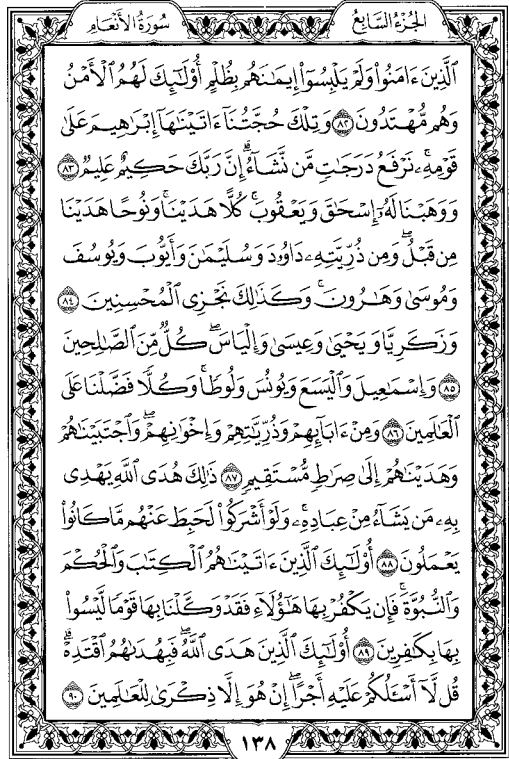 الجزء السابع
سورة الأنعام
ٱلَّذِينَ ءَامَنُوا۟ وَلَمْ يَلْبِسُوٓا۟ إِيمَـٰنَهُم بِظُلْمٍ أُو۟لَـٰٓئِكَ لَهُمُ ٱلْأَمْنُ
وَهُم مُّهْتَدُونَ ٨٢ وَتِلْكَ حُجَّتُنَآ ءَاتَيْنَـٰهَآ إِبْرَٰهِيمَ عَلَىٰ
قَوْمِهِۦ ۚ نَرْفَعُ دَرَجَـٰتٍ مَّن نَّشَآءُ ۗ إِنَّ رَبَّكَ حَكِيمٌ عَلِيمٌ ٨٣
وَوَهَبْنَا لَهُۥٓ إِسْحَـٰقَ وَيَعْقُوبَ ۚ كُلًّا هَدَيْنَا ۚ وَنُوحًا هَدَيْنَا
مِن قَبْلُ ۖ وَمِن ذُرِّيَّتِهِۦ دَاوُۥدَ وَسُلَيْمَـٰنَ وَأَيُّوبَ وَيُوسُفَ
وَمُوسَىٰ وَهَـٰرُونَ ۚ وَكَذَٰلِكَ نَجْزِى ٱلْمُحْسِنِينَ ٨٤
وَزَكَرِيَّا وَيَحْيَىٰ وَعِيسَىٰ وَإِلْيَاسَ ۖ كُلٌّ مِّنَ ٱلصَّـٰلِحِينَ
٨٥ وَإِسْمَـٰعِيلَ وَٱلْيَسَعَ وَيُونُسَ وَلُوطًا ۚ وَكُلًّا فَضَّلْنَا عَلَى
ٱلْعَـٰلَمِينَ ٨٦ وَمِنْ ءَابَآئِهِمْ وَذُرِّيَّـٰتِهِمْ وَإِخْوَٰنِهِمْ ۖ وَٱجْتَبَيْنَـٰهُمْ
وَهَدَيْنَـٰهُمْ إِلَىٰ صِرَٰطٍ مُّسْتَقِيمٍ ٨٧ ذَٰلِكَ هُدَى ٱللَّهِ يَهْدِى
بِهِۦ مَن يَشَآءُ مِنْ عِبَادِهِۦ ۚ وَلَوْ أَشْرَكُوا۟ لَحَبِطَ عَنْهُم مَّا كَانُوا۟
يَعْمَلُونَ ٨٨ أُو۟لَـٰٓئِكَ ٱلَّذِينَ ءَاتَيْنَـٰهُمُ ٱلْكِتَـٰبَ وَٱلْحُكْمَ
وَٱلنُّبُوَّةَ ۚ فَإِن يَكْفُرْ بِهَا هَـٰٓؤُلَآءِ فَقَدْ وَكَّلْنَا بِهَا قَوْمًا لَّيْسُوا۟
بِهَا بِكَـٰفِرِينَ ٨٩ أُو۟لَـٰٓئِكَ ٱلَّذِينَ هَدَى ٱللَّهُ ۖ فَبِهُدَىٰهُمُ ٱقْتَدِهْ ۗ
قُل لَّآ أَسْـَٔلُكُمْ عَلَيْهِ أَجْرًا ۖ إِنْ هُوَ إِلَّا ذِكْرَىٰ لِلْعَـٰلَمِينَ ٩٠
١٣٨